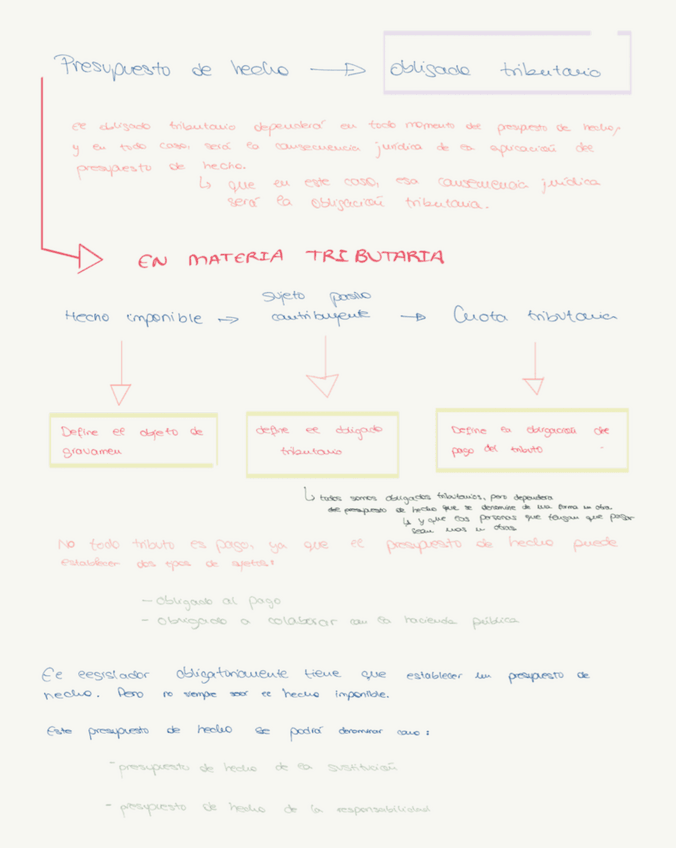 Presupuesto de hecho → obligado tributario
El obligado tributario dependerá en todo momento del presupesto de hecho,
y en todo caso, será la consecuencia jurídica de la aplicación del
presupuesto de hecho.
↳ que en este caso, esa consecuencia jurídica
será la obligación tributaria.
EN MATERIA TRIBUTARIA
Hecho imponible → sujeto pasivo contribuyente → Cuota tributaria
Define el objeto de
gravamen
define el obligado
tributario
Define la obligación de
pago del tributo
↳ todos somos obligados tributarios, pero dependerá
del presupuesto de hecho que se denomine de una forma u otra.
↳ y que las personas que tengan que pagar
sean unas u otras
No todo tributo es pago, ya que el presupuesto de hecho puede
establecer dos tipos de sujetos:
- obligado al pago
- obligado a colaborar con la hacienda pública
El legislador obligatoriamente tiene que establecer un presupuesto de
hecho. Pero no siempre será el hecho imponible.
Este presupuesto de hecho se podrá denominar como:
- presupuesto de hecho de la sustitución
- presupuesto de hecho de la responsabilidad